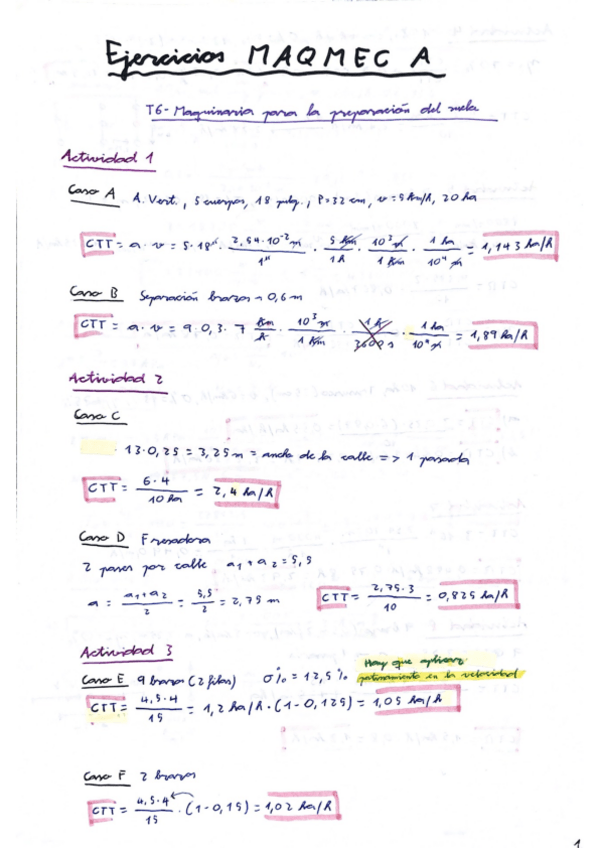 Ejercicios MAQMEC A
T6- Maquinaria para la preparación del suelo
Actividad 1
Caso A A. Vert., 5 cuerpos, 18 pulg., P=32 cm, v=5 km/h, 20 ha
CTT = a · v = 5 · 18" · 2,54·10^-2 m / 1" · 5 km / 1 h · 10^3 m / 1 km · 1 ha / 10^4 m = 1,143 ha/h
Caso B Separación brazos = 0,6 m
CTT = a · v = 9 · 0,3 · 7 km/h · 10^3 m / 1 km · 1 h / 3600 s · 1 ha / 10^4 m = 1,89 ha/h
Actividad 2
Caso C
· 13 · 0,25 = 3,25 m = ancho de la calle => 1 pasada
CTT = 6·4 / 10 ha = 2,4 ha/h
Caso D Fresadora
2 pases por calle a1 + a2 = 5,5
a = a1+a2 / 2 = 5,5 / 2 = 2,75 m CTT = 2,75·3 / 10 = 0,825 ha/h
Actividad 3
Hay que aplicar
Caso E 9 brazos (2 filas) σ% = 12,5% patinamiento en la velocidad
CTT = 4,5·4 / 15 = 1,2 ha/h · (1-0,125) = 1,05 ha/h
Caso F 2 brazos
CTT = 4,5·4 / 15 · (1-0,15) = 1,02 ha/h
1